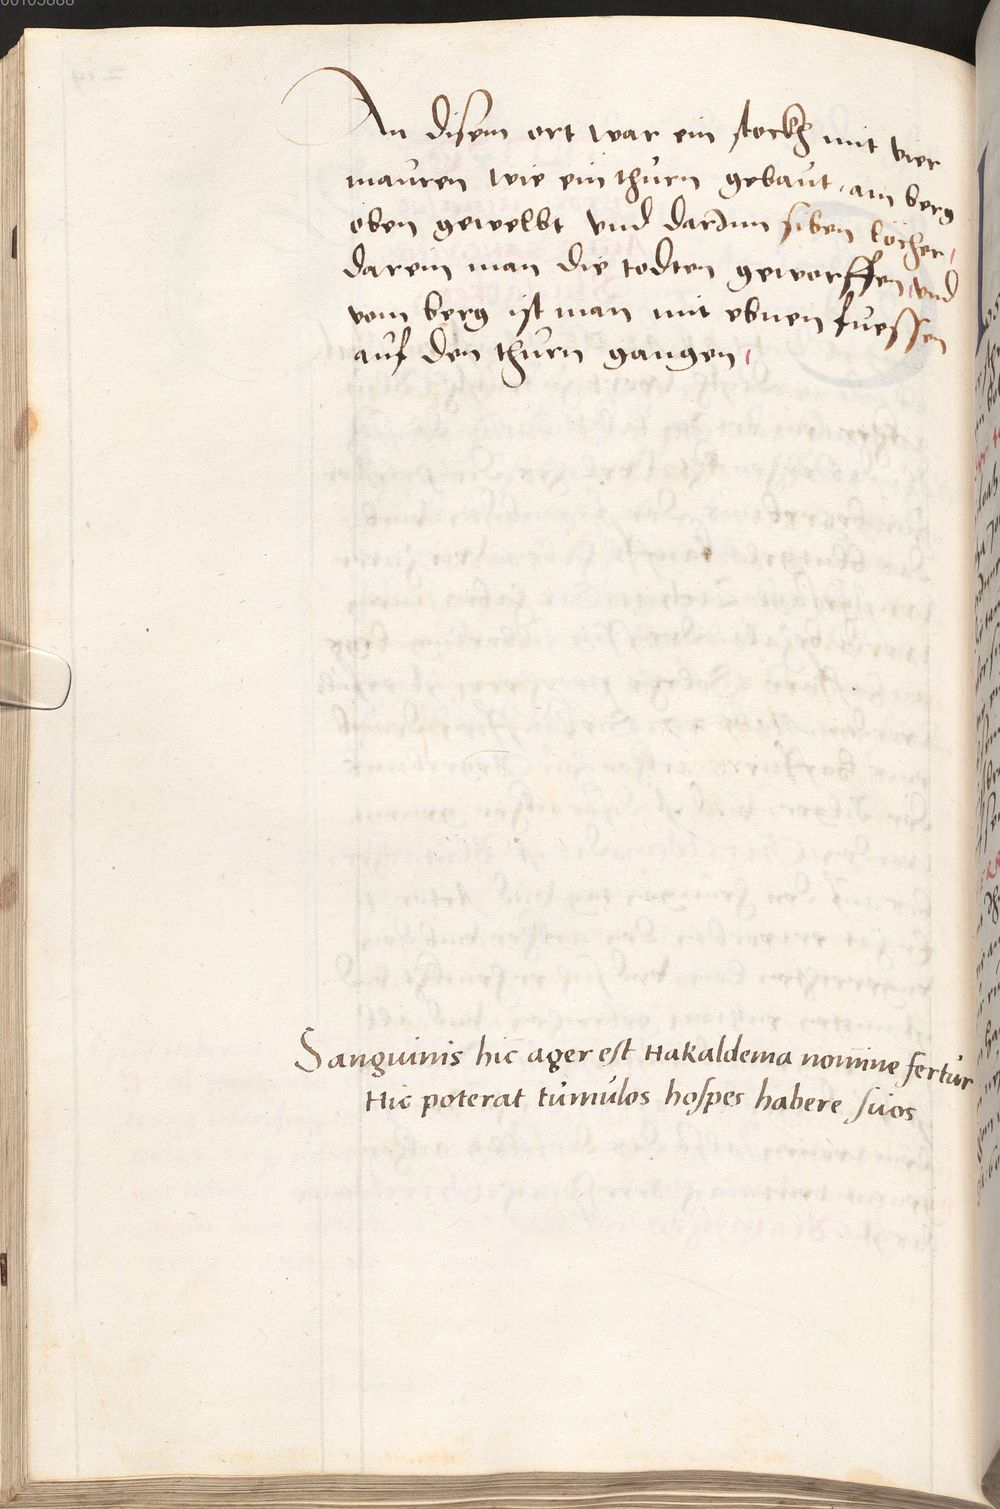 An disem ort war ein stockh mit vier
mauren wie ein thurn gebaut, am berg
oben gewelbt vnd darinn siben löcher,
darein man die todten geworffen, vnd
vom berg ist man mit ebnen fuessen
auf den thurn gangen,
Sanguinis hic ager est Hakaldema nomine fertur
Hic poterat tumulos hospes habere suos